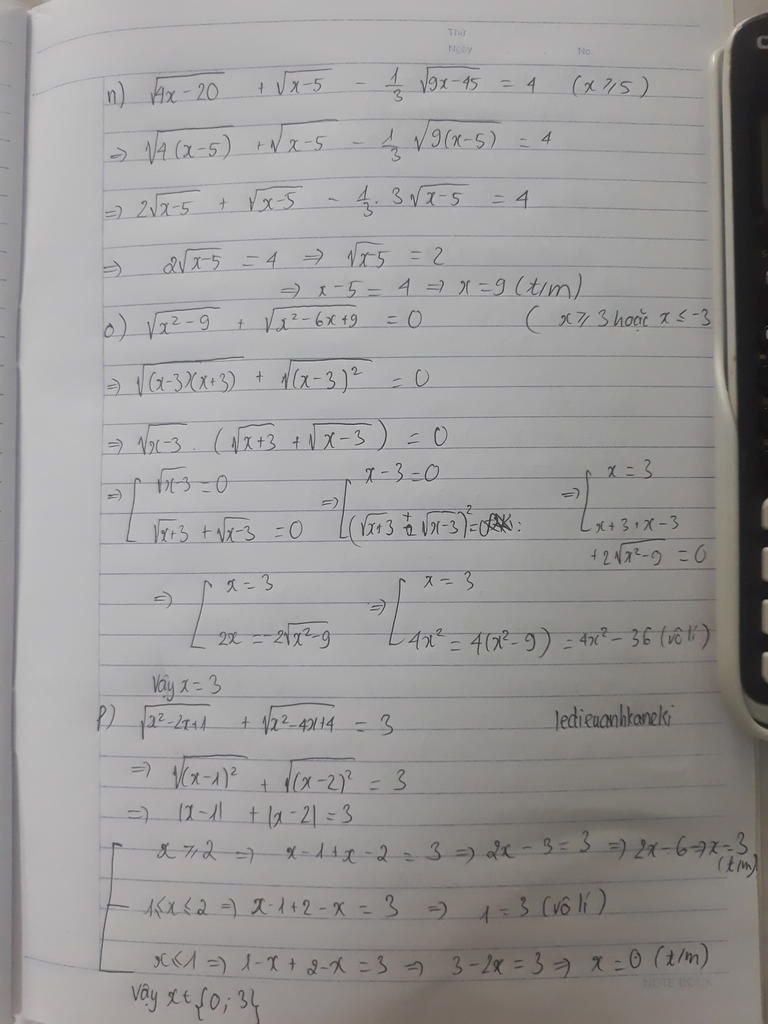 Thứ
Ngày No.
n) √(4x-20) + √(x-5) - 1/3 √(9x-45) = 4 (x ≥ 5)
=> √(4(x-5)) + √(x-5) - 1/3 √(9(x-5)) = 4
=> 2√(x-5) + √(x-5) - 1/3 . 3√(x-5) = 4
=> 2√(x-5) = 4 => √(x-5) = 2
=> x-5 = 4 => x = 9 (t/m)
o) √(x²-9) + √(x²-6x+9) = 0 ( x ≥ 3 hoặc x ≤ -3
=> √((x-3)(x+3)) + √((x-3)²) = 0
=> √(x-3) . (√(x+3) + √(x-3)) = 0
=> [ √(x-3) = 0 => [ x-3 = 0 => [ x = 3
√(x+3) + √(x-3) = 0 (√(x+3) + √(x-3))² = 0 : x+3+x-3
+2√(x²-9) = 0
=> [ x = 3 => [ x = 3
2x = -2√(x²-9) 4x² = 4(x²-9) = 4x²-36 (vô lí)
Vậy x = 3
p) √(x²-2x+1) + √(x²-4x+4) = 3 ledieuanhkaneki
=> √((x-1)²) + √((x-2)²) = 3
=> |x-1| + |x-2| = 3
[ x ≥ 2 => x-1+x-2 = 3 => 2x-3 = 3 => 2x=6 => x=3
(t/m)
1 ≤ x ≤ 2 => x-1+2-x = 3 => 1 = 3 (vô lí)
x ≤ 1 => 1-x+2-x = 3 => 3-2x = 3 => x = 0 (t/m)
Vậy x ∈ {0; 3}